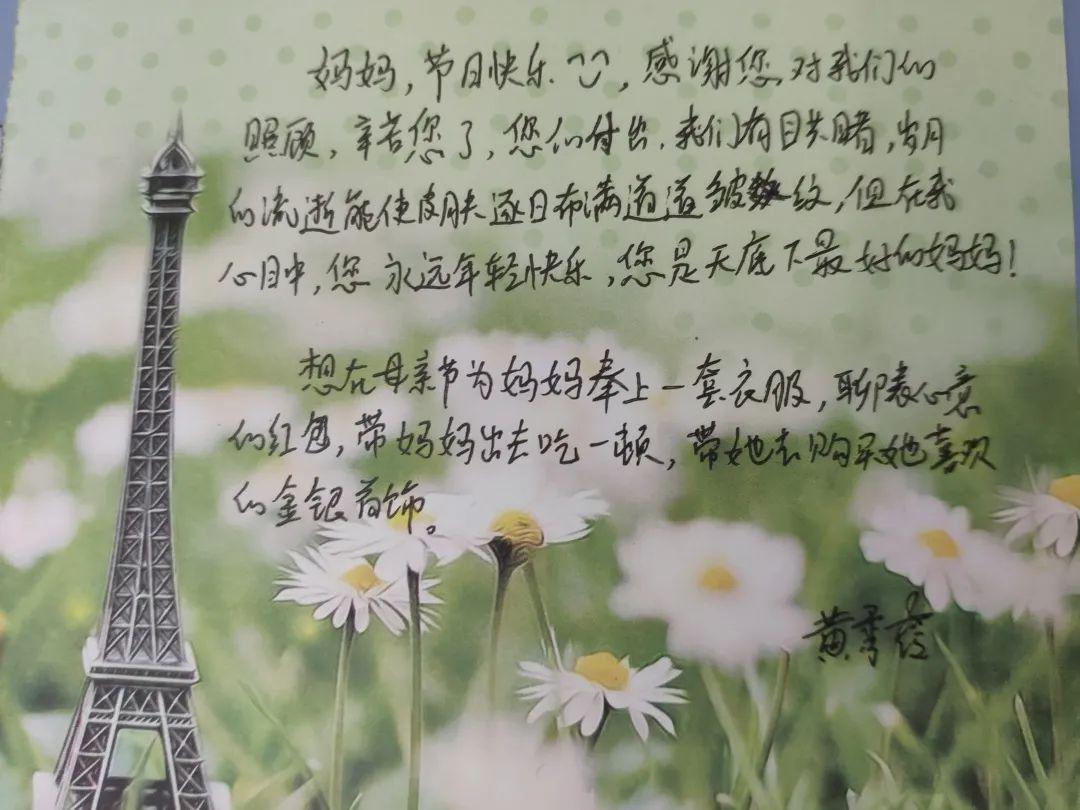 妈妈，节日快乐，感谢您对我们的
照顾，辛苦您了，您的付出，我们有目共睹，岁月
的流逝能使皮肤逐日布满道道皱纹，但在我
心目中，您永远年轻快乐，您是天底下最好的妈妈！
想在母亲节为妈妈奉上一套衣服，聊表心意
的红包，带妈妈出去吃一顿，带她去购买她喜欢
的金银首饰。
黄秀